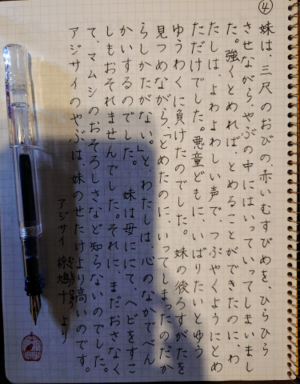 ④
妹は、三尺のおびの、赤いむすびめを、ひらひら
させながら、やぶの中にはいっていってしまいまし
た。強くとめれば、とめることができたのに、わ
たしは、よわよわしい声で、つぶやくようにとめ
ただけでした。悪童どもに、いばりたいとゆう
ゆうわくに負けたのでした。妹の後ろすがたを
見つめながら「とめたのに、いってしまったのだか
らしかたがない。」と、わたしは、心のなかでべん
かいするのでした。 妹は母ににて、ヘビをすこ
しもおそれませんでした。それに、まだおさなく
て、マムシのおそろしさなど知らないのでした。
アジサイのやぶは、妹のせたけより高いのです。
アジサイ 椋鳩十 より